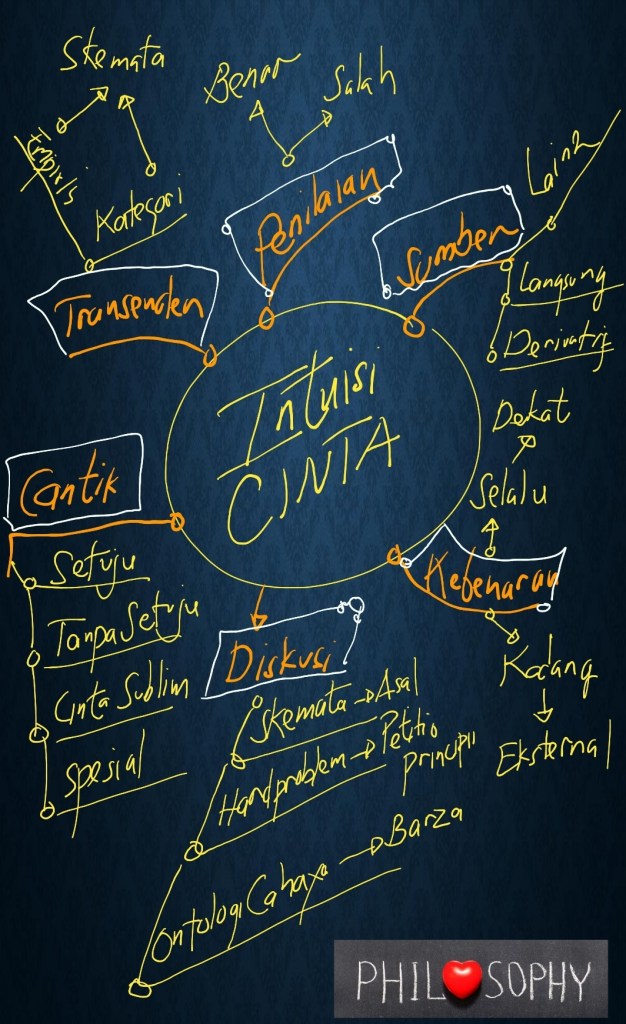 Skemata
Empiris
Kategori
Transenden
Benar
Salah
Penilaian
Sumber
Lain2
Langsung
Derivatif
Intuisi
CINTA
Dekat
Selalu
Kebenaran
Kadang
Eksternal
Cantik
Setuju
Tanpa Setuju
Cinta Sublim
Spesial
Diskusi
Skemata → Asal
Hard problem → Petitio
principii
Ontologi Cahaya → Barza
PHIL SOPHY